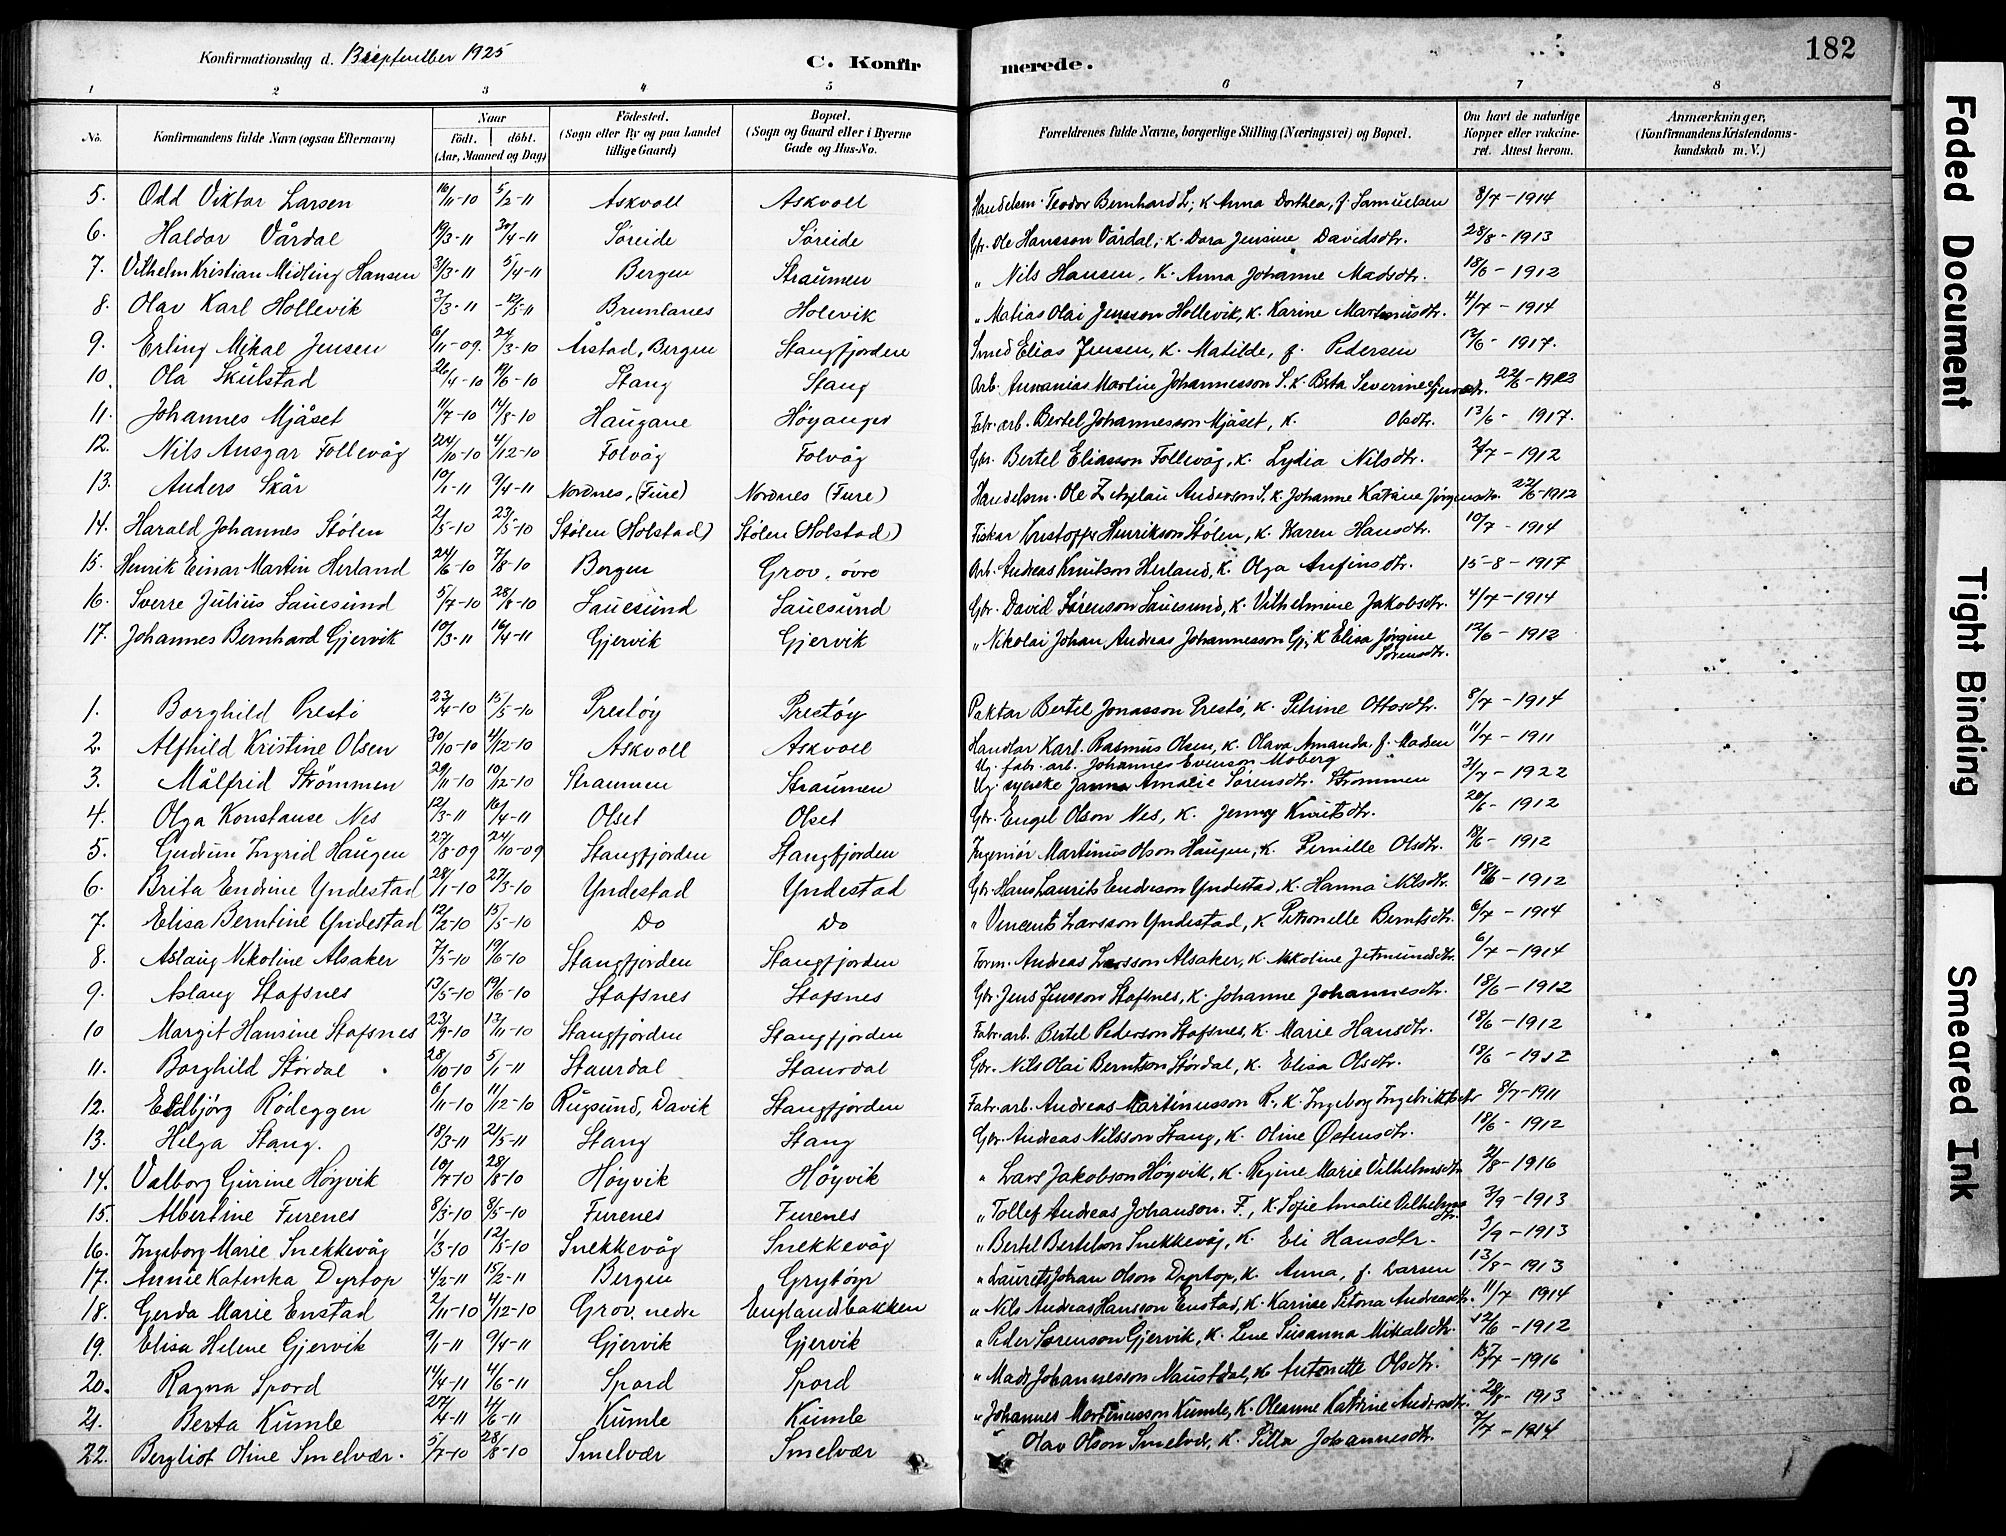 182
Konfirmationsdag d. 13 september 1925 C. Konfirmerede.
1 2 3 4 5 6 7 8
No. Konfirmandens fulde Navn (ogsaa Efternavn) Naar Födt. döbt. (Aar, Maaned og Dag) Födested. (Sogn eller By og paa Landet tillige Gaard) Bopæl. (Sogn og Gaard eller i Byerne Gade og Hus-No. Forældrenes fulde Navne, borgerlige Stilling (Næringsvei) og Bopæl. Om havt de naturlige Kopper eller vakcineret. Attest herom. Anmærkninger, (Konfirmandens Kristendomskundskab m. V.)
5. Odd Viktor Larsen 16/11-10 5/2-11 Askvoll Askvoll Handelsm. Teodor Bernhard L; K Anna Dorthea, f. Samuelsen 8/7-1914
6. Haldor Vårdal 19/3-11 30/4-11 Søreide Søreide Gbr. Ole Hansson Vårdal; K. Dora Jensine Davidsdtr. 28/8-1913
7. Vilhelm Kristian Midling Hansen 31/3-11 5/4-11 Bergen Straumen " Nils Hansen, K. Anna Johanne Madsdtr. 18/6-1912
8. Olav Karl Hollevik 3/3-11 -12/5-11 Brunlanes Holevik " Matias Olai Jensson Hollevik, K. Karine Martinusdtr. 4/7-1914
9. Erling Mikal Jensen 6/11-09. 24/3-10 Årstad, Bergen Stangfjorden Smed Elias Jensen, K. Matilde, f. Pedersen 13/6-1917.
10. Ola Skulstad 26/4-10 19/6-10 Stang Stang Arb. Annanias Martin Johannesson S. K. Berta Severine 22/6-1923
11. Johannes Mjåset 11/7-10 14/8-10 Haugane Høyanger Fabr. arb. Bertel Johannesson Mjåset, K. Olsdtr. 13/6-1917.
12. Nils Ansgar Follevåg 24/10-10 4/12-10 Folvåg Folvåg Gbr. Bertel Eliasson Follevåg, K. Lydia Nilsdtr. 2/7-1912
13. Anders Skår 10/1-11 9/4-11 Nordnes, (Fure) Nordnes (Fure) Handelsm. Ole Zetzelau Anderson S. K. Johanne Katrine Jørgensdtr. 22/6-1912
14. Harald Johannes Stølen 2/5-10 23/5-10 Stølen (Holstad) Stølen (Holstad) Fiskar Kristoffer Henrikson Stølen, K. Karen Hansdtr. 10/7-1914
15. Henrik Einar Martin Herland 24/6-10 7/8-10 Bergen Grov, øvre Arb. Andreas Knutson Herland, K. Olga Anfinsdtr. 15-8-1917
16. Sverre Julius Lauesund 5/7-10 28/8-10 Lauesund Lauesund Gbr. David Sørenson Lauesund, K. Vilhelmine Jakobsdtr. 4/7-1914
17. Johannes Bernhard Gjervik 10/3-11 16/4-11 Gjervik Gjervik " Nikolai Johan Andreas Johannesson Gj; K Elisa Jørgine Sørensdtr. 12/6-1912
1. Borghild Prestø 23/4-10 15/5-10 Prestøy Prestøy Paktar Bertel Jonasson Prestø, K. Petrine Ottosdtr. 8/7-1914
2. Alfhild Kristine Olsen 30/10-10 4/12-10 Askvoll Askvoll Handlar Karl Rasmus Olsen, K. Olava Amanda f. Madsen 11/7-1911
3. Målfrid Strømmen 29/11-10 10/12-10 Straumen Straumen Ug. fabr. arb. Johannes Evenson Moberg Ug. syerske Janna Amalie Sørensdtr. Strømmen 21/7-1922
4. Olga Konstanse Nes 12/3-11 16/4-11 Olset Olset Gbr. Engel Olson Nes, K. Jenny Knutsdtr. 20/6-1912
5. Gudrun Ingrid Haugen 27/8-09 24/10-09 Stangfjorden Stangfjorden Ingeniør Martinus Olson Haugen, K. Pernille Olsdtr. 18/6-1912
6. Brita Endrine Yndestad 28/1-10 27/3-10 Yndestad Yndestad Gbr. Hans Laurits Endreson Yndestad, K. Hanna Nilsdtr. 18/6-1912
7. Elisa Berntine Yndestad 12/2-10 15/5-10 Do Do " Vincents Larsson Yndestad, K Petronelle Berntsdtr. 6/7-1914
8. Aslaug Nikoline Alsaker 7/5-10 19/6-10 Stangfjorden Stangfjorden Form. Andreas Larsson Alsaker, K. Nikoline Jetmundsdtr. 6/7-1914
9. Aslaug Stafsnes 13/5-10 19/6-10 Stafsnes Stafsnes Gbr. Jens Jensson Stafsnes, K. Johanne Johannesdtr. 18/6-1912
10 Margit Hansine Stafsnes 23/9-10 13/11-10 Stangfjorden Stangfjorden Fabr. arb. Bertel Pederson Stafsnes, K. Marie Hansdtr. 18/6-1912
11. Borghild Størdal 28/10-10 5/1-11 Staurdal Staurdal Gbr. Nils Olai Berntson Størdal, K. Elisa Olsdtr. 18/6-1912
12. Eldbjörg Rödeggen 6/11-10 11/12-10 Rugsund, Davik Stangfjorden Fabr. arb. Andreas Martinusson R., K. Ingeborg Ingebriktsdtr 8/7-1911
13. Helga Stang. 18/3-11 21/5-11 Stang Stang Gbr. Andreas Nilsson Stang, K. Oline Østensdtr. 18/6-1912
14. Valborg Gurine Høyvik 10/7-10 28/8-10 Høyvik Høyvik " Lars Jakobson Høyvik, K. Regine Marie Vilhelmsdtr 2/8-1916
15. Albertine Furenes 8/3-10 8/5-10 Furenes Furenes " Tollef Andreas Johanson. F., K. Sofie Amalie Vilhelmsdtr. 3/9-1913
16. Ingeborg Marie Snekkevåg 1/3-10 12/5-10 Snekkevåg Snekkevåg " Bertel Bertelson Snekkevåg, K. Eli Hansdtr. 3/9-1913
17. Annie Katinka Dyrtop 4/2-11 15/2-11 Bergen Grytöyr " Laurets Johan Olson Dyrtop, K. Anna, f. Larsen 13/8-1913
18. Gerda Marie Enstad 2/11-10 4/12-10 Grov, nedre Englandbakken " Nils Andreas Hansson Enstad, K. Karine Petona Andreasdtr. 11/7 1914
19. Elisa Helene Gjervik 9/1-11 9/4-11 Gjervik Gjervik " Peder Sørenson Gjervik, K. Lene Susanna Mikalsdtr. 12/6-1912
20. Ragna Spord 14/4-11 4/6-11 Spord Spord " Mads Johannesson Naustdal, K Antonette Olsdtr. 15/7-1916
21. Berta Kumle 27/4-11 4/6-11 Kumle Kumle " Johannes Martinusson Kumle, K. Oleanne Katrine Andersdtr. 28/8-1913
22. Bergliot Oline Smelvær. 5/7-10 28/8-10 Smelvær Smelvær " Olav Olson Smelvær, K. Pilla Johannesdtr. 7/7-1914
Faded Document
Tight Binding
Smeared Ink